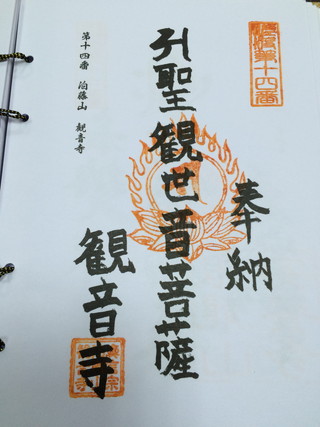 第十四番
奉納
引聖観世音菩薩
観音寺
第十四番 山 観音寺